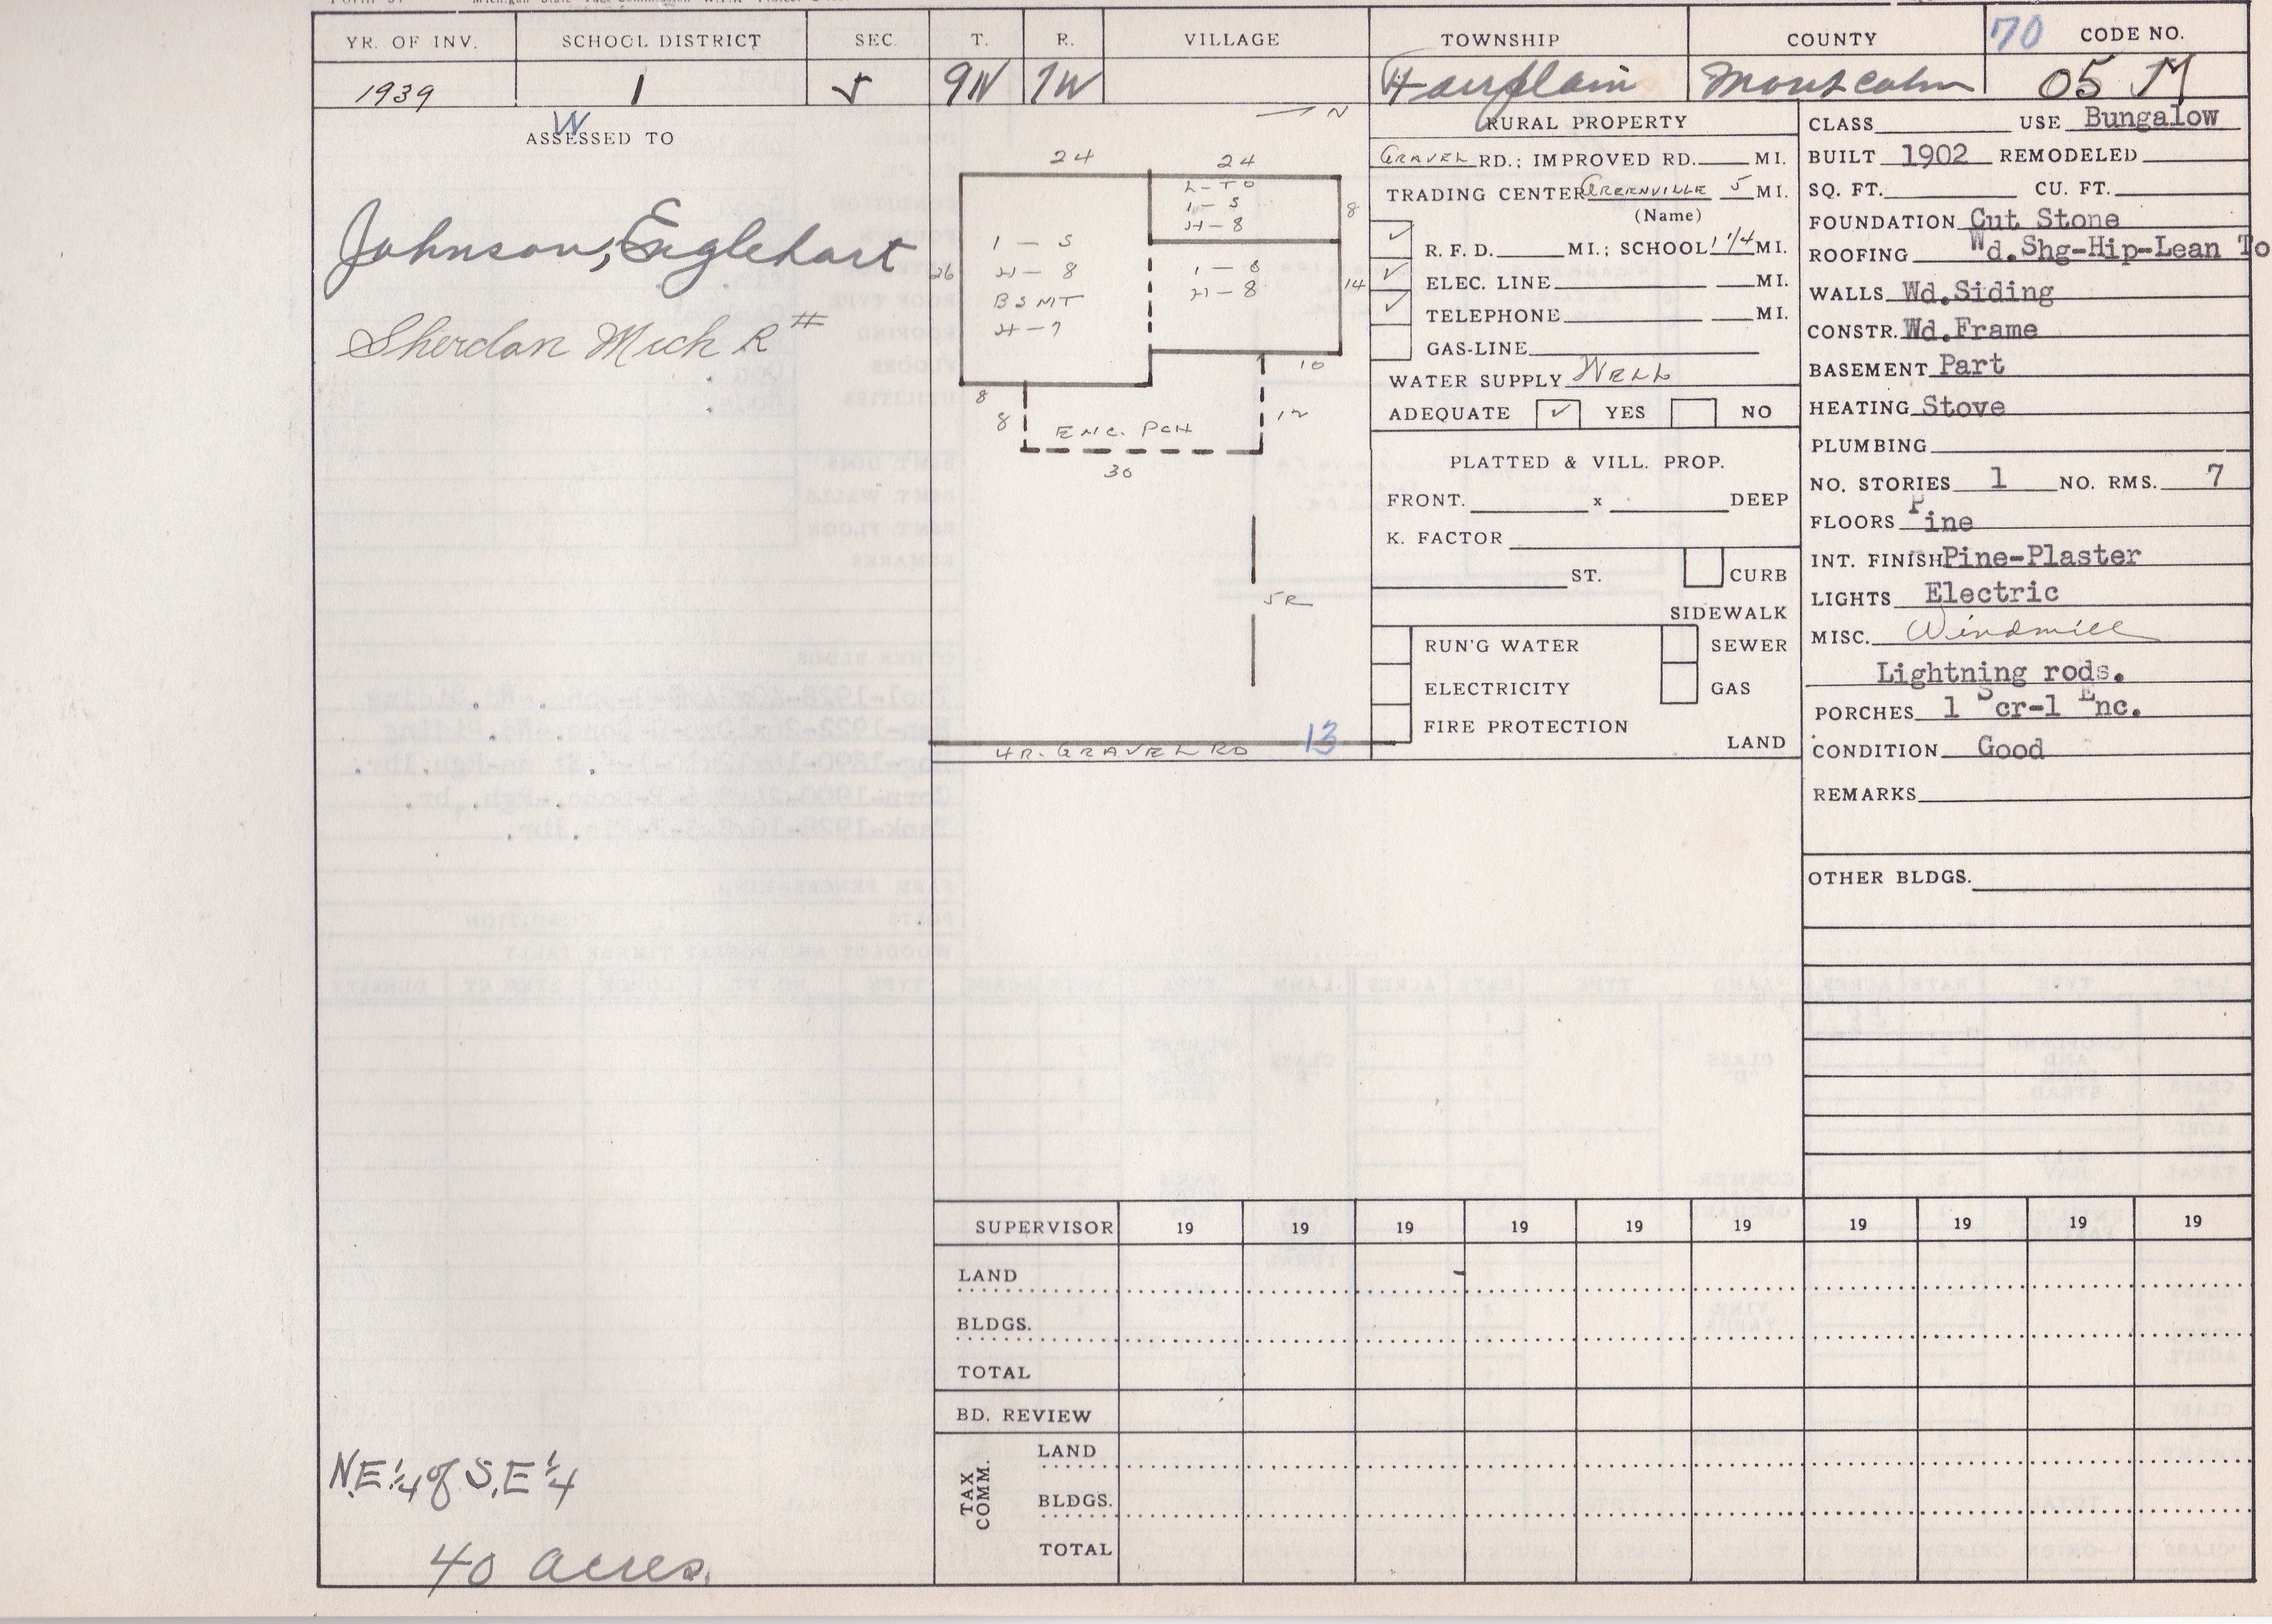 YR. OF INV. SCHOOL DISTRICT SEC. T. R. VILLAGE TOWNSHIP COUNTY 70 CODE NO.
1939 1 5 9N 7W Fairplain Montcalm 05 M
W
ASSESSED TO
Johnson, Englehart
Sherdan Mich R#
N.E 1/4 of S.E 1/4
40 acres.
N
24 24
L-TO
1-S
H-8
8
1-S
H-8
BSMT
H-7
26
H-8
14
10
8
8
12
ENC. PCH
30
5R
4R. GRAVEL RD 13
RURAL PROPERTY
GRAVEL RD.; IMPROVED RD. MI.
TRADING CENTER GREENVILLE 5 MI.
(Name)
✓ R. F. D. MI.; SCHOOL 1 1/4 MI.
✓ ELEC. LINE MI.
✓ TELEPHONE MI.
GAS-LINE
WATER SUPPLY WELL
ADEQUATE ✓ YES NO
PLATTED & VILL. PROP.
FRONT. x DEEP
K. FACTOR
ST. CURB
SIDEWALK
RUN'G WATER SEWER
ELECTRICITY GAS
FIRE PROTECTION
LAND
CLASS USE Bungalow
BUILT 1902 REMODELED
SQ. FT. CU. FT.
FOUNDATION Cut Stone
ROOFING Wd.Shg-Hip-Lean To
WALLS Wd.Siding
CONSTR. Wd.Frame
BASEMENT Part
HEATING Stove
PLUMBING
NO. STORIES 1 NO. RMS. 7
FLOORS Pine
INT. FINISH Pine-Plaster
LIGHTS Electric
MISC. Windmill
Lightning rods.
PORCHES 1 Scr-1 Enc.
CONDITION Good
REMARKS
OTHER BLDGS.
SUPERVISOR 19 19 19 19 19 19 19 19 19 19
LAND
BLDGS.
TOTAL
BD. REVIEW
TAX COMM.
LAND
BLDGS.
TOTAL